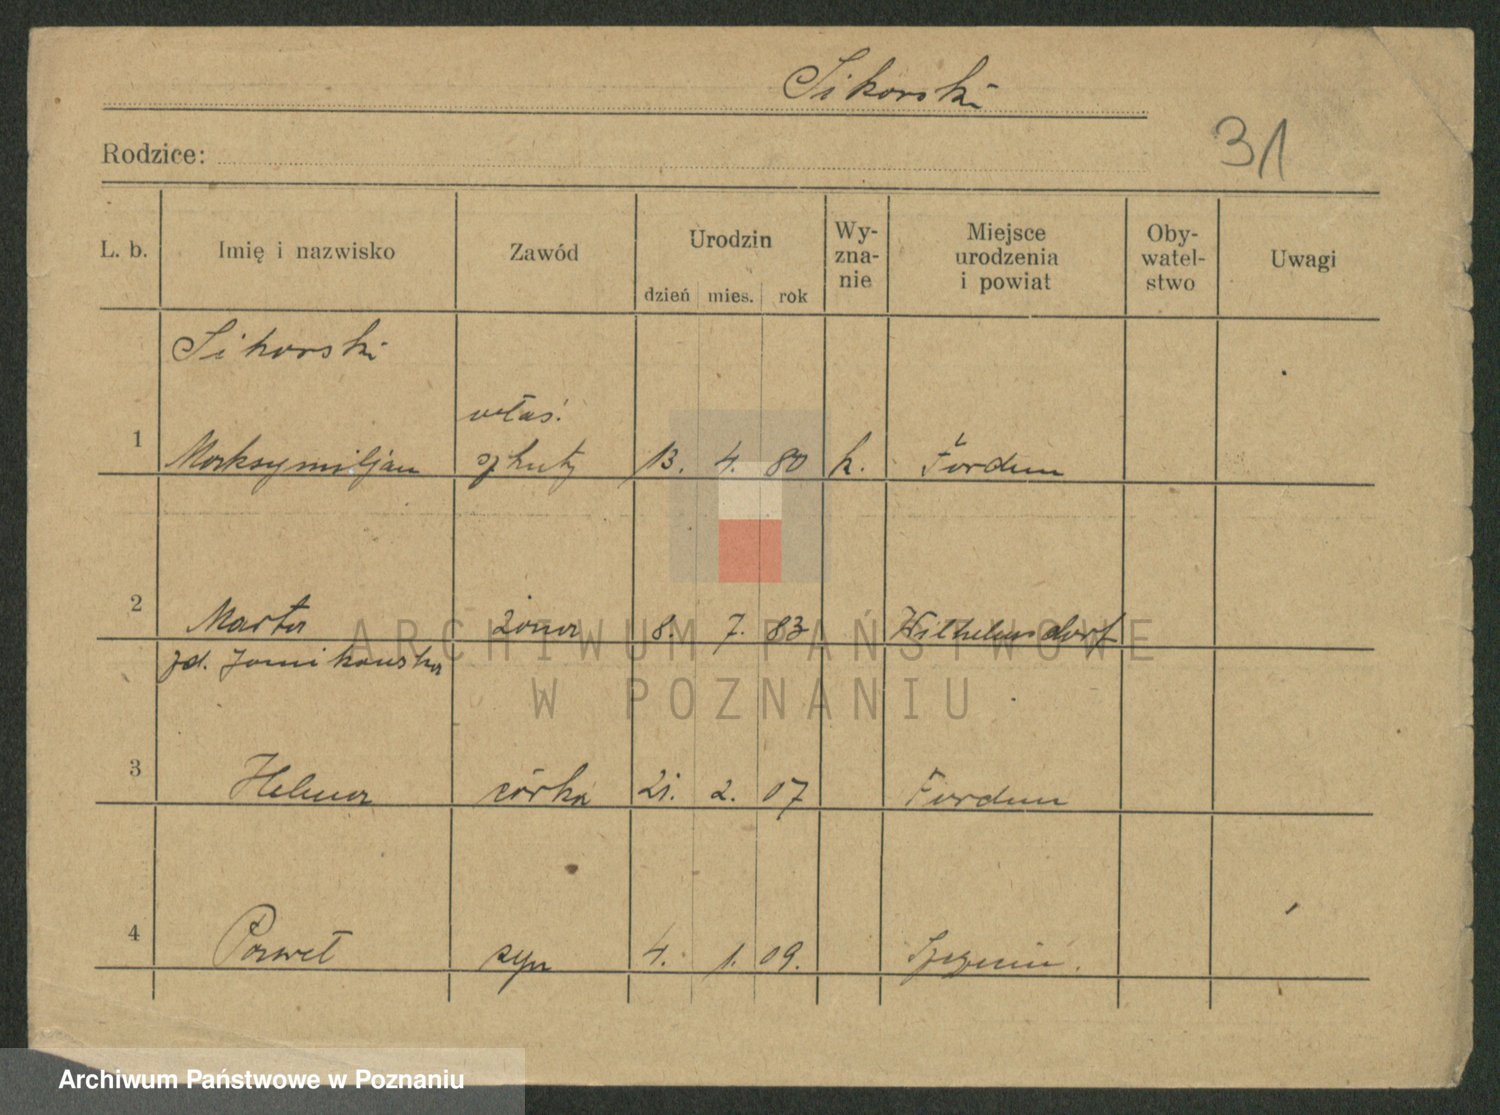 Sikorski
31
Rodzice:
L. b. Imię i nazwisko Zawód Urodzin Wy-zna-nie Miejsce urodzenia i powiat Oby-watel-stwo Uwagi
dzień mies. rok
Sikorski
właś.
1 Maksymiljan szkuty 13. 4. 80 k. Fordon
2 Marta żona 8. 7. 83 Wilhelmsdorf
zd. Janikowska
3 Helena córka 21. 2. 07 Fordon
4 Paweł syn 4. 1. 09.
ARCHIWUM PAŃSTWOWE
W POZNANIU
Archiwum Państwowe w Poznaniu